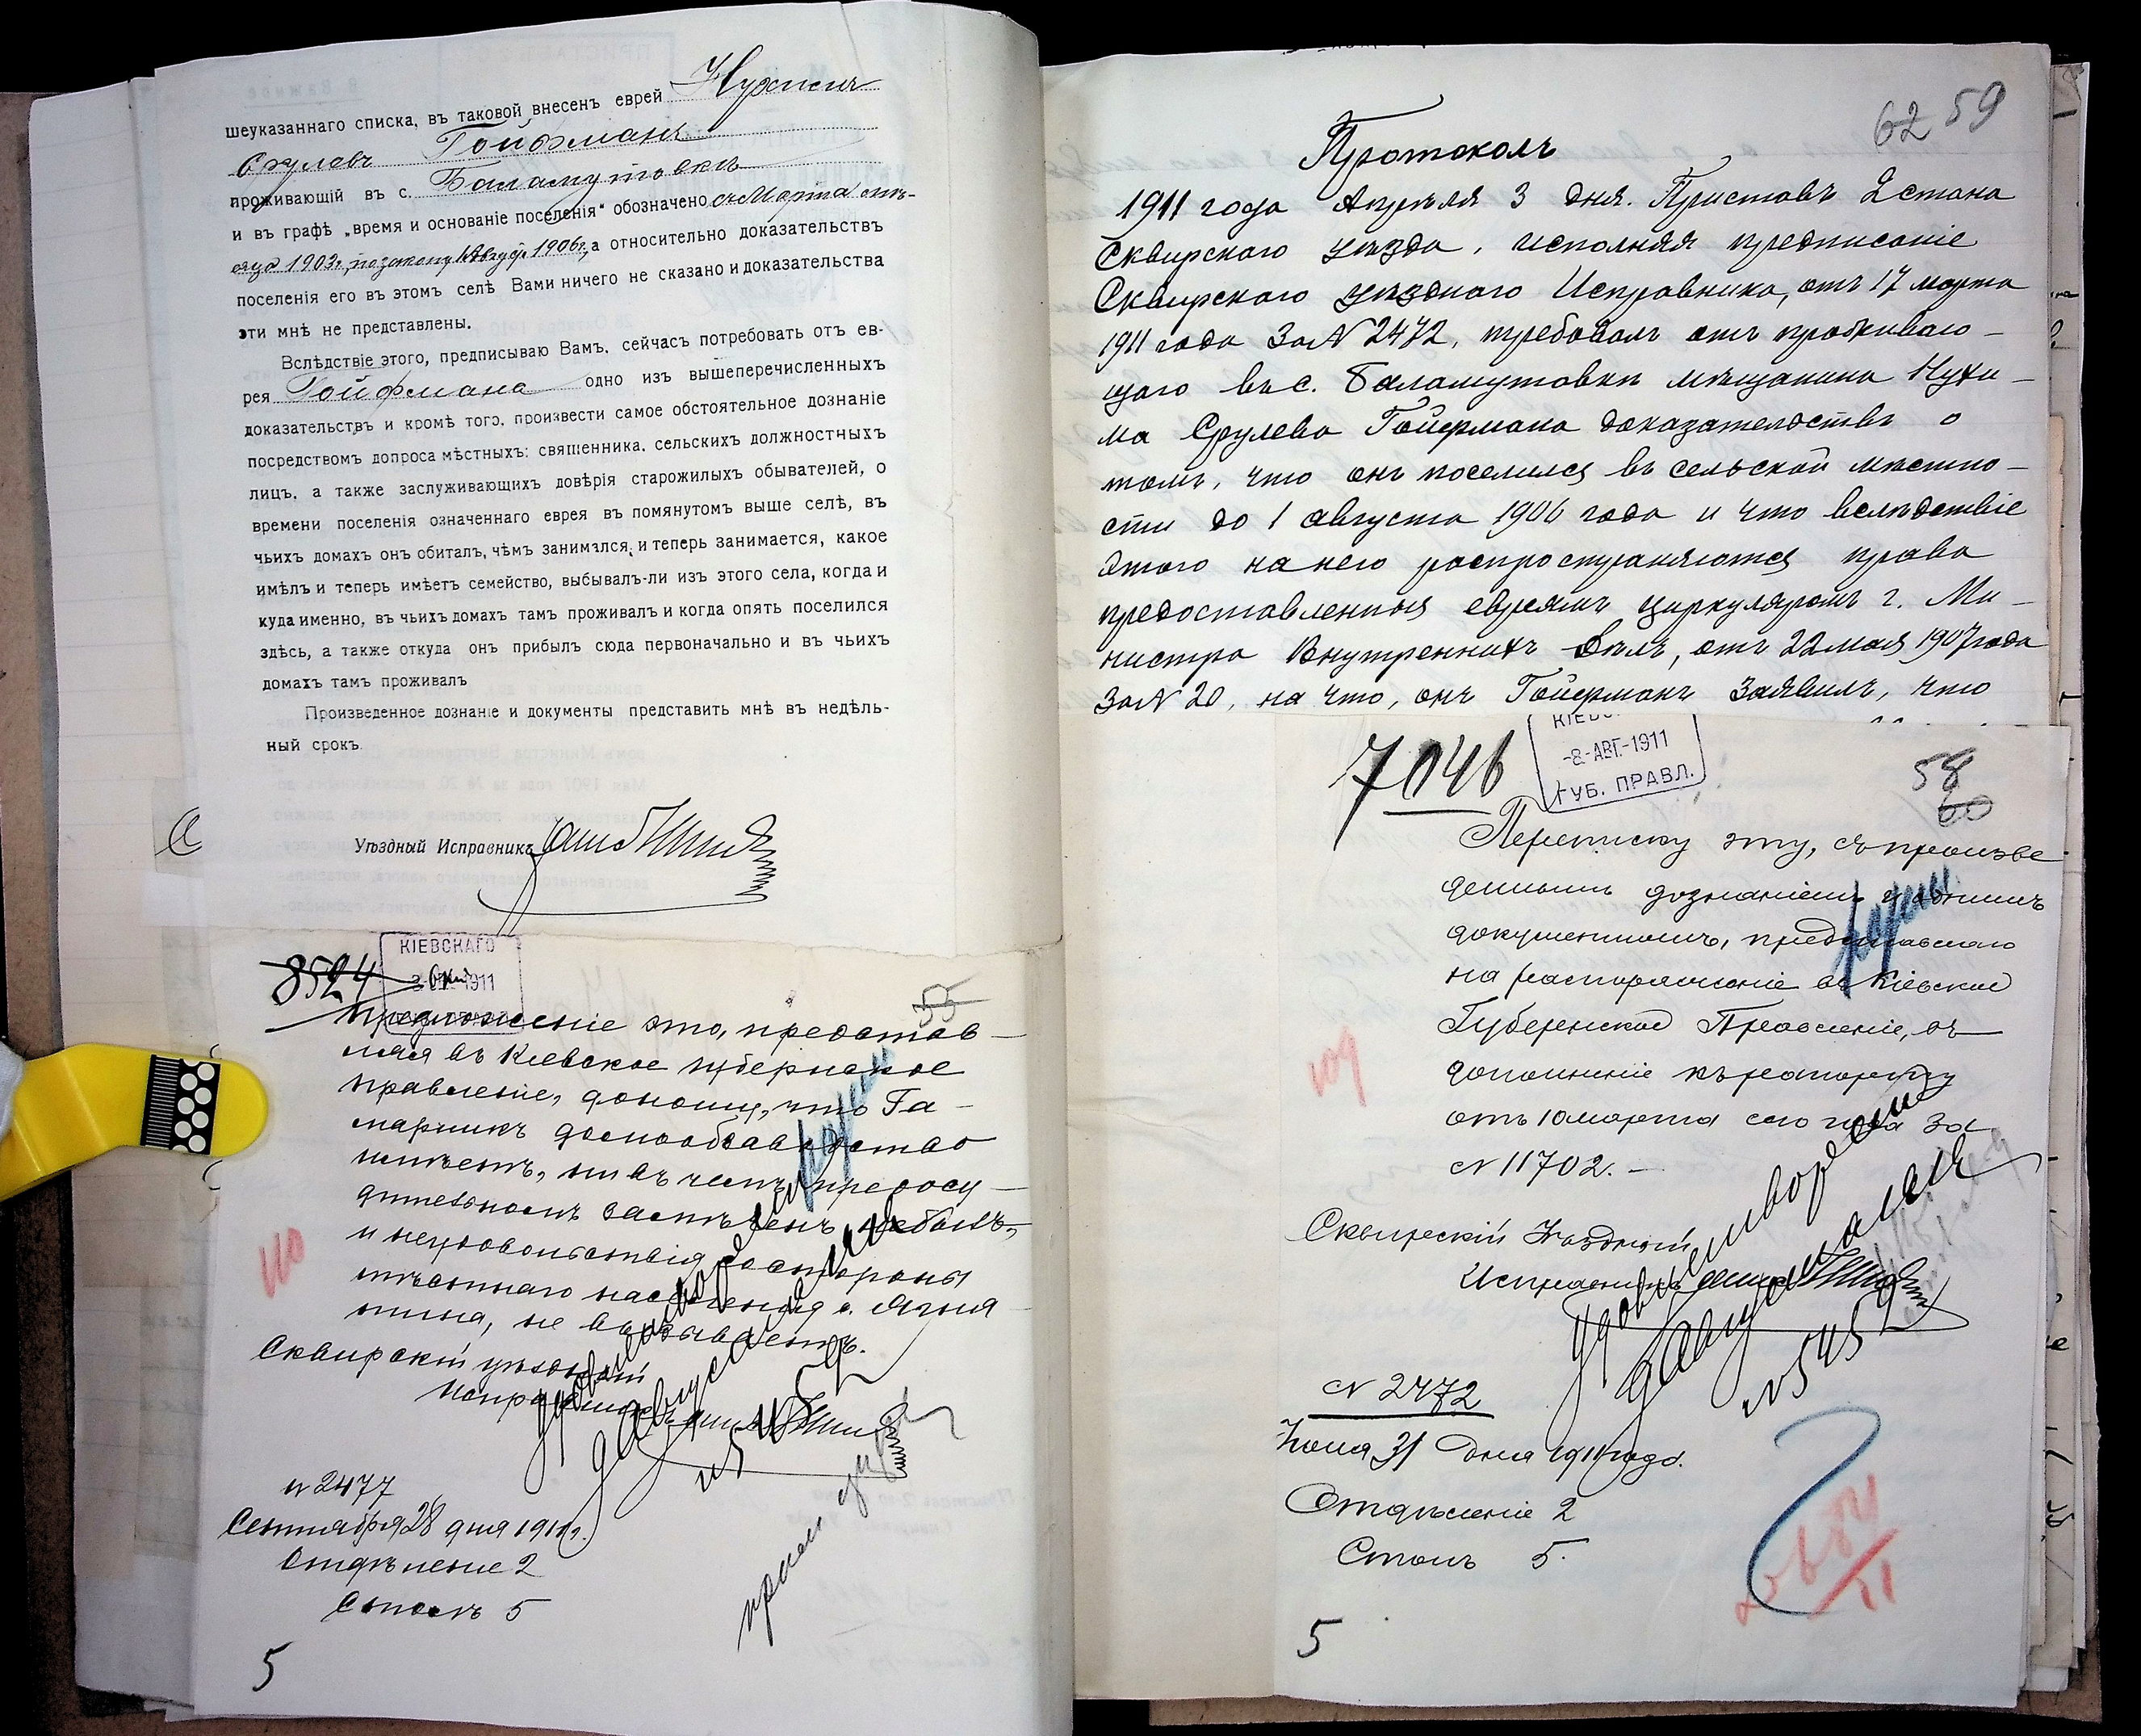 шеуказаннаго списка, въ таковой внесенъ еврей Нухимъ
Срулевъ Гойфманъ
проживающій въ с. Баламутовкѣ
и въ графѣ „время и основаніе поселенія“ обозначено съ Марта мѣ-
сяца 1903г., по закону 1 Август. 1906г., а относительно доказательствъ
поселенія его въ этомъ селѣ Вами ничего не сказано и доказательства
эти мнѣ не представлены.
Вслѣдствіе этого, предписываю Вамъ, сейчасъ потребовать отъ ев-
рея Гойфмана одно изъ вышеперечисленныхъ
доказательствъ и кромѣ того, произвести самое обстоятельное дознаніе
посредствомъ допроса мѣстныхъ: священника, сельскихъ должностныхъ
лицъ, а также заслуживающихъ довѣрія старожилыхъ обывателей, о
времени поселенія означеннаго еврея въ помянутомъ выше селѣ, въ
чьихъ домахъ онъ обиталъ, чѣмъ занимался, и теперь занимается, какое
имѣлъ и теперь имѣетъ семейство, выбывалъ-ли изъ этого села, когда и
куда именно, въ чьихъ домахъ тамъ проживалъ и когда опять поселился
здѣсь, а также откуда онъ прибылъ сюда первоначально и въ чьихъ
домахъ тамъ проживалъ
Произведенное дознаніе и документы представить мнѣ въ недѣль-
ный срокъ.
Уѣздный Исправникъ
КІЕВСКАГО
8524
3- -1911
55
Предложеніе это, представ-
ляя въ Кіевское губернское
правленіе, доношу, что Га-
марникъ домообзаводство
имѣетъ, ни въ чемъ предосу-
дительномъ замѣченъ не былъ,
и неудовольствія со стороны
мѣстнаго населенія с. Ягня-
тина, не вызываетъ.
Сквирскій уѣздный
Исправникъ
110
N 2477
Сентября 28 дня 1911г.
Отдѣленіе 2
Столъ 5
5
62 59
Протоколъ
1911 года Апрѣля 3 дня. Приставъ 2 стана
Сквирскаго уѣзда, исполняя предписаніе
Сквирскаго уѣзднаго Исправника, отъ 17 марта
1911 года за N 2472, требовалъ отъ проживаю-
щаго въ с. Баламутовкѣ мѣщанина Нухи-
ма Срулева Гойфмана доказательствъ о
томъ, что онъ поселился въ сельской мѣстно-
сти до 1 августа 1906 года и что вслѣдствіе
этого на него распространяются права
предоставленныя евреямъ циркуляромъ г. Ми-
нистра Внутреннихъ Дѣлъ, отъ 22 мая 1907 года
за N 20, на что, онъ Гойфманъ заявилъ, что
7046
-8-АВГ-1911
ГУБ. ПРАВЛ.
58
60
Переписку эту, съ произве
деннымъ дознаніемъ и
документомъ, представляю
на распоряженіе въ Кіевское
Губернское Правленіе, въ
дополненіе къ рапорту
отъ 10 марта сего года за
N 11702.-
109
Сквирскій Уѣздный
Исправникъ
N 5459
N 2472
Іюля 31 дня 1911 года.
Отдѣленіе 2
Столъ 5.
5